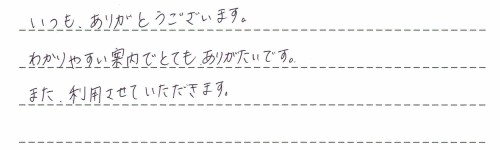 いつも、ありがとうございます。
わかりやすい案内でとてもありがたいです。
また、利用させていただきます。